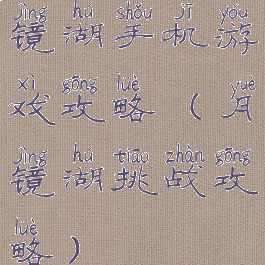 jìng hú shǒu jī yóu
镜湖手机游
xì gōng lüè yuè
戏攻略（月
jìng hú tiāo zhàn gōng
镜湖挑战攻
lüè
略）